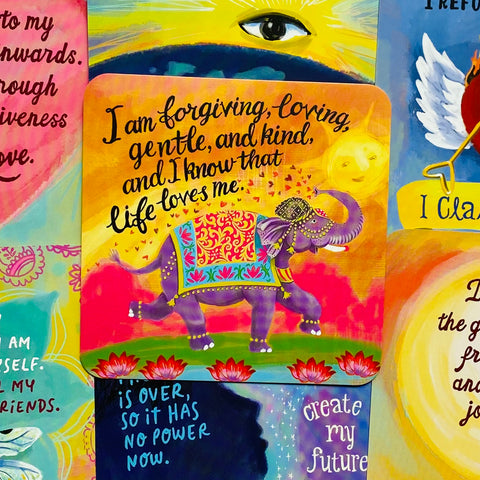 to my
rough
ove.
I am forgiving, loving,
gentle, and kind,
and I know that
life loves me.
I REFU
I Cla
I AM
YSELF.
MY
RIENDS.
IS OVER,
SO IT HAS
NO POWER
NOW.
create
my
future
the g
fr
and
jo